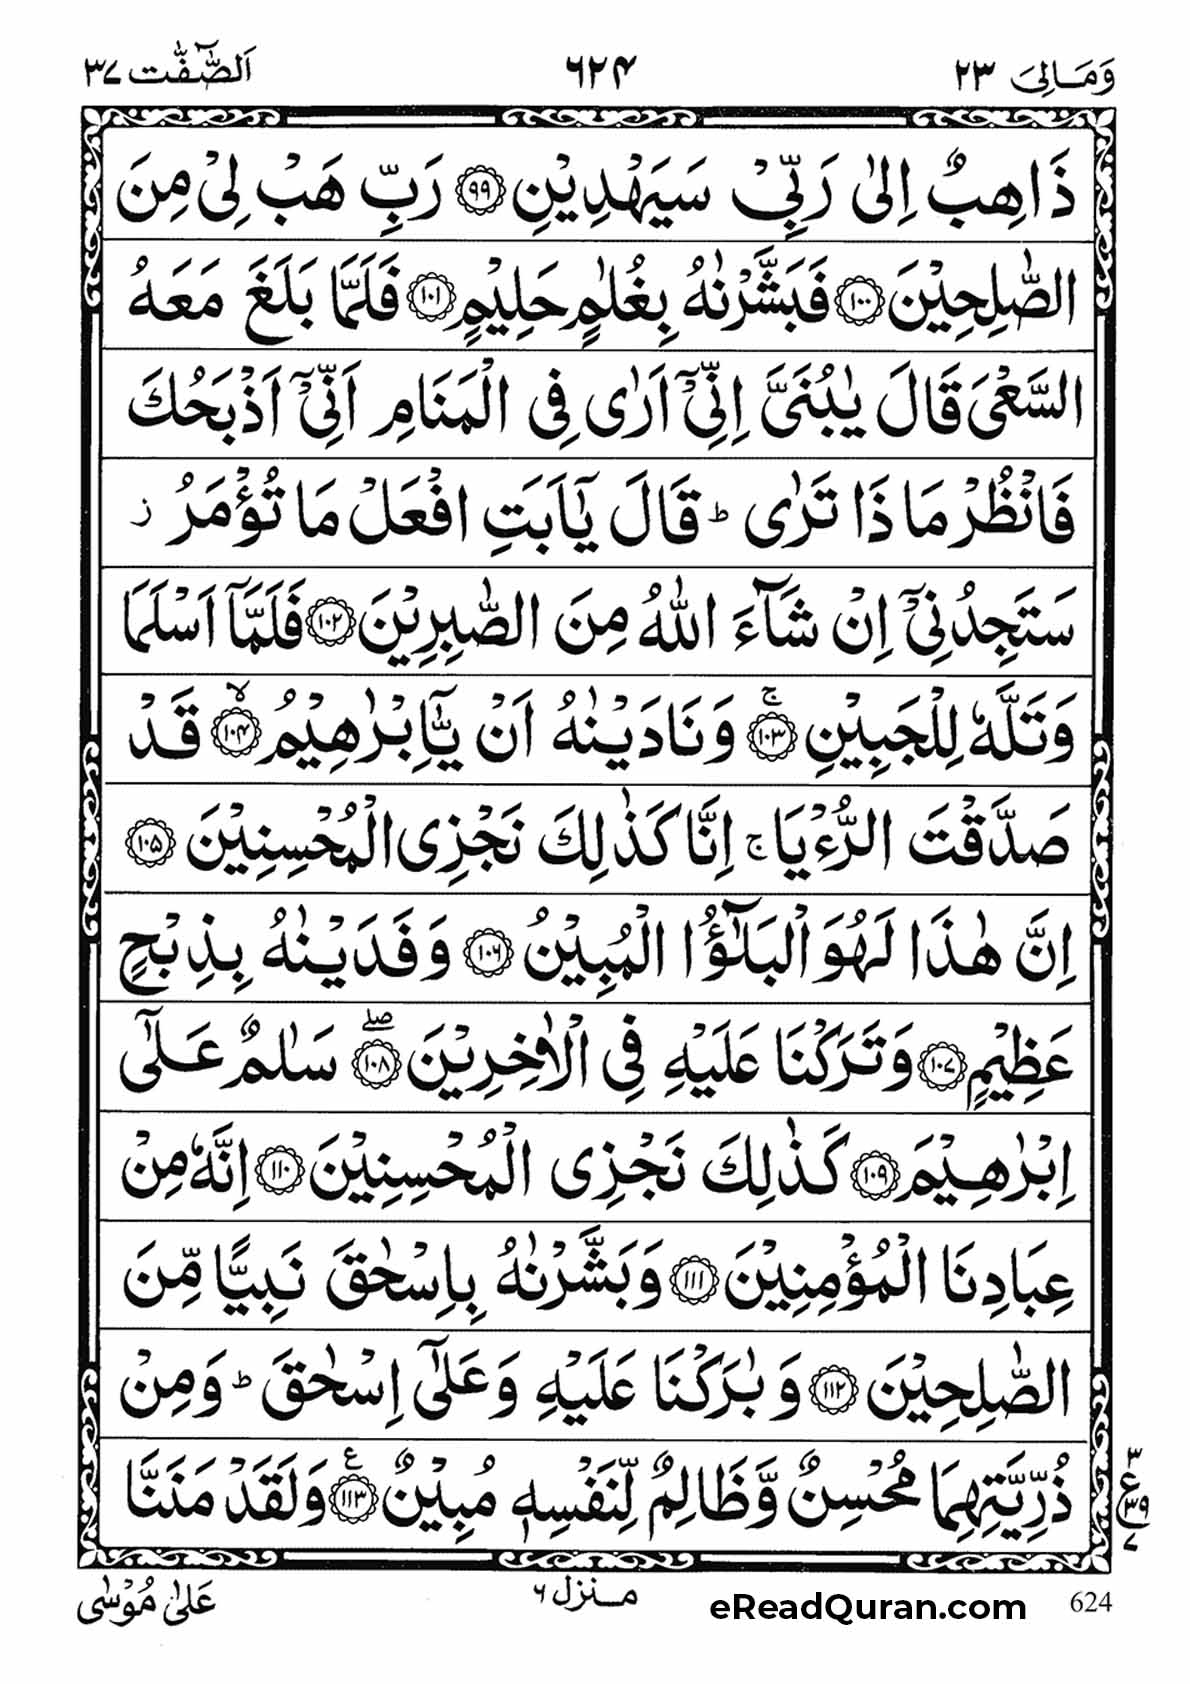 وَمَالِیَ ۲۳ ۶۲۴ اَلصّٰٓفّٰت ۳۷
ذَاهِبٌ اِلٰى رَبِّىْ سَيَهْدِيْنِ ۹۹ رَبِّ هَبْ لِىْ مِنَ
الصّٰلِحِيْنَ ۱۰۰ فَبَشَّرْنٰهُ بِغُلٰمٍ حَلِيْمٍ ۱۰۱ فَلَمَّا بَلَغَ مَعَهُ
السَّعْىَ قَالَ يٰبُنَىَّ اِنِّىْۤ اَرٰى فِى الْمَنَامِ اَنِّىْۤ اَذْبَحُكَ
فَانْظُرْ مَاذَا تَرٰى ؕ قَالَ يٰۤاَبَتِ افْعَلْ مَا تُؤْمَرُ ز
سَتَجِدُنِىْۤ اِنْ شَآءَ اللّٰهُ مِنَ الصّٰبِرِيْنَ ۱۰۲ فَلَمَّاۤ اَسْلَمَا
وَتَلَّهٗ لِلْجَبِيْنِ ۚ ۱۰۳ وَنَادَيْنٰهُ اَنْ يّٰۤاِبْرٰهِيْمُ ۙ ۱۰۴ قَدْ
صَدَّقْتَ الرُّءْيَا ۚ اِنَّا كَذٰلِكَ نَجْزِى الْمُحْسِنِيْنَ ۱۰۵
اِنَّ هٰذَا لَهُوَ الْبَلٰٓؤُا الْمُبِيْنُ ۱۰۶ وَفَدَيْنٰهُ بِذِبْحٍ
عَظِيْمٍ ۱۰۷ وَتَرَكْنَا عَلَيْهِ فِى الْاٰخِرِيْنَ ۖ ۱۰۸ سَلٰمٌ عَلٰٓى
اِبْرٰهِيْمَ ۱۰۹ كَذٰلِكَ نَجْزِى الْمُحْسِنِيْنَ ۱۱۰ اِنَّهٗ مِنْ
عِبَادِنَا الْمُؤْمِنِيْنَ ۱۱۱ وَبَشَّرْنٰهُ بِاِسْحٰقَ نَبِيًّا مِّنَ
الصّٰلِحِيْنَ ۱۱۲ وَبٰرَكْنَا عَلَيْهِ وَعَلٰٓى اِسْحٰقَ ؕ وَمِنْ
ذُرِّيَّتِهِمَا مُحْسِنٌ وَّظَالِمٌ لِّنَفْسِهٖ مُبِيْنٌ ۱۱۳ ع وَلَقَدْ مَنَنَّا
۳
ع
۳۹
۷
عَلٰى مُوْسٰى منزل ۶ eReadQuran.com 624